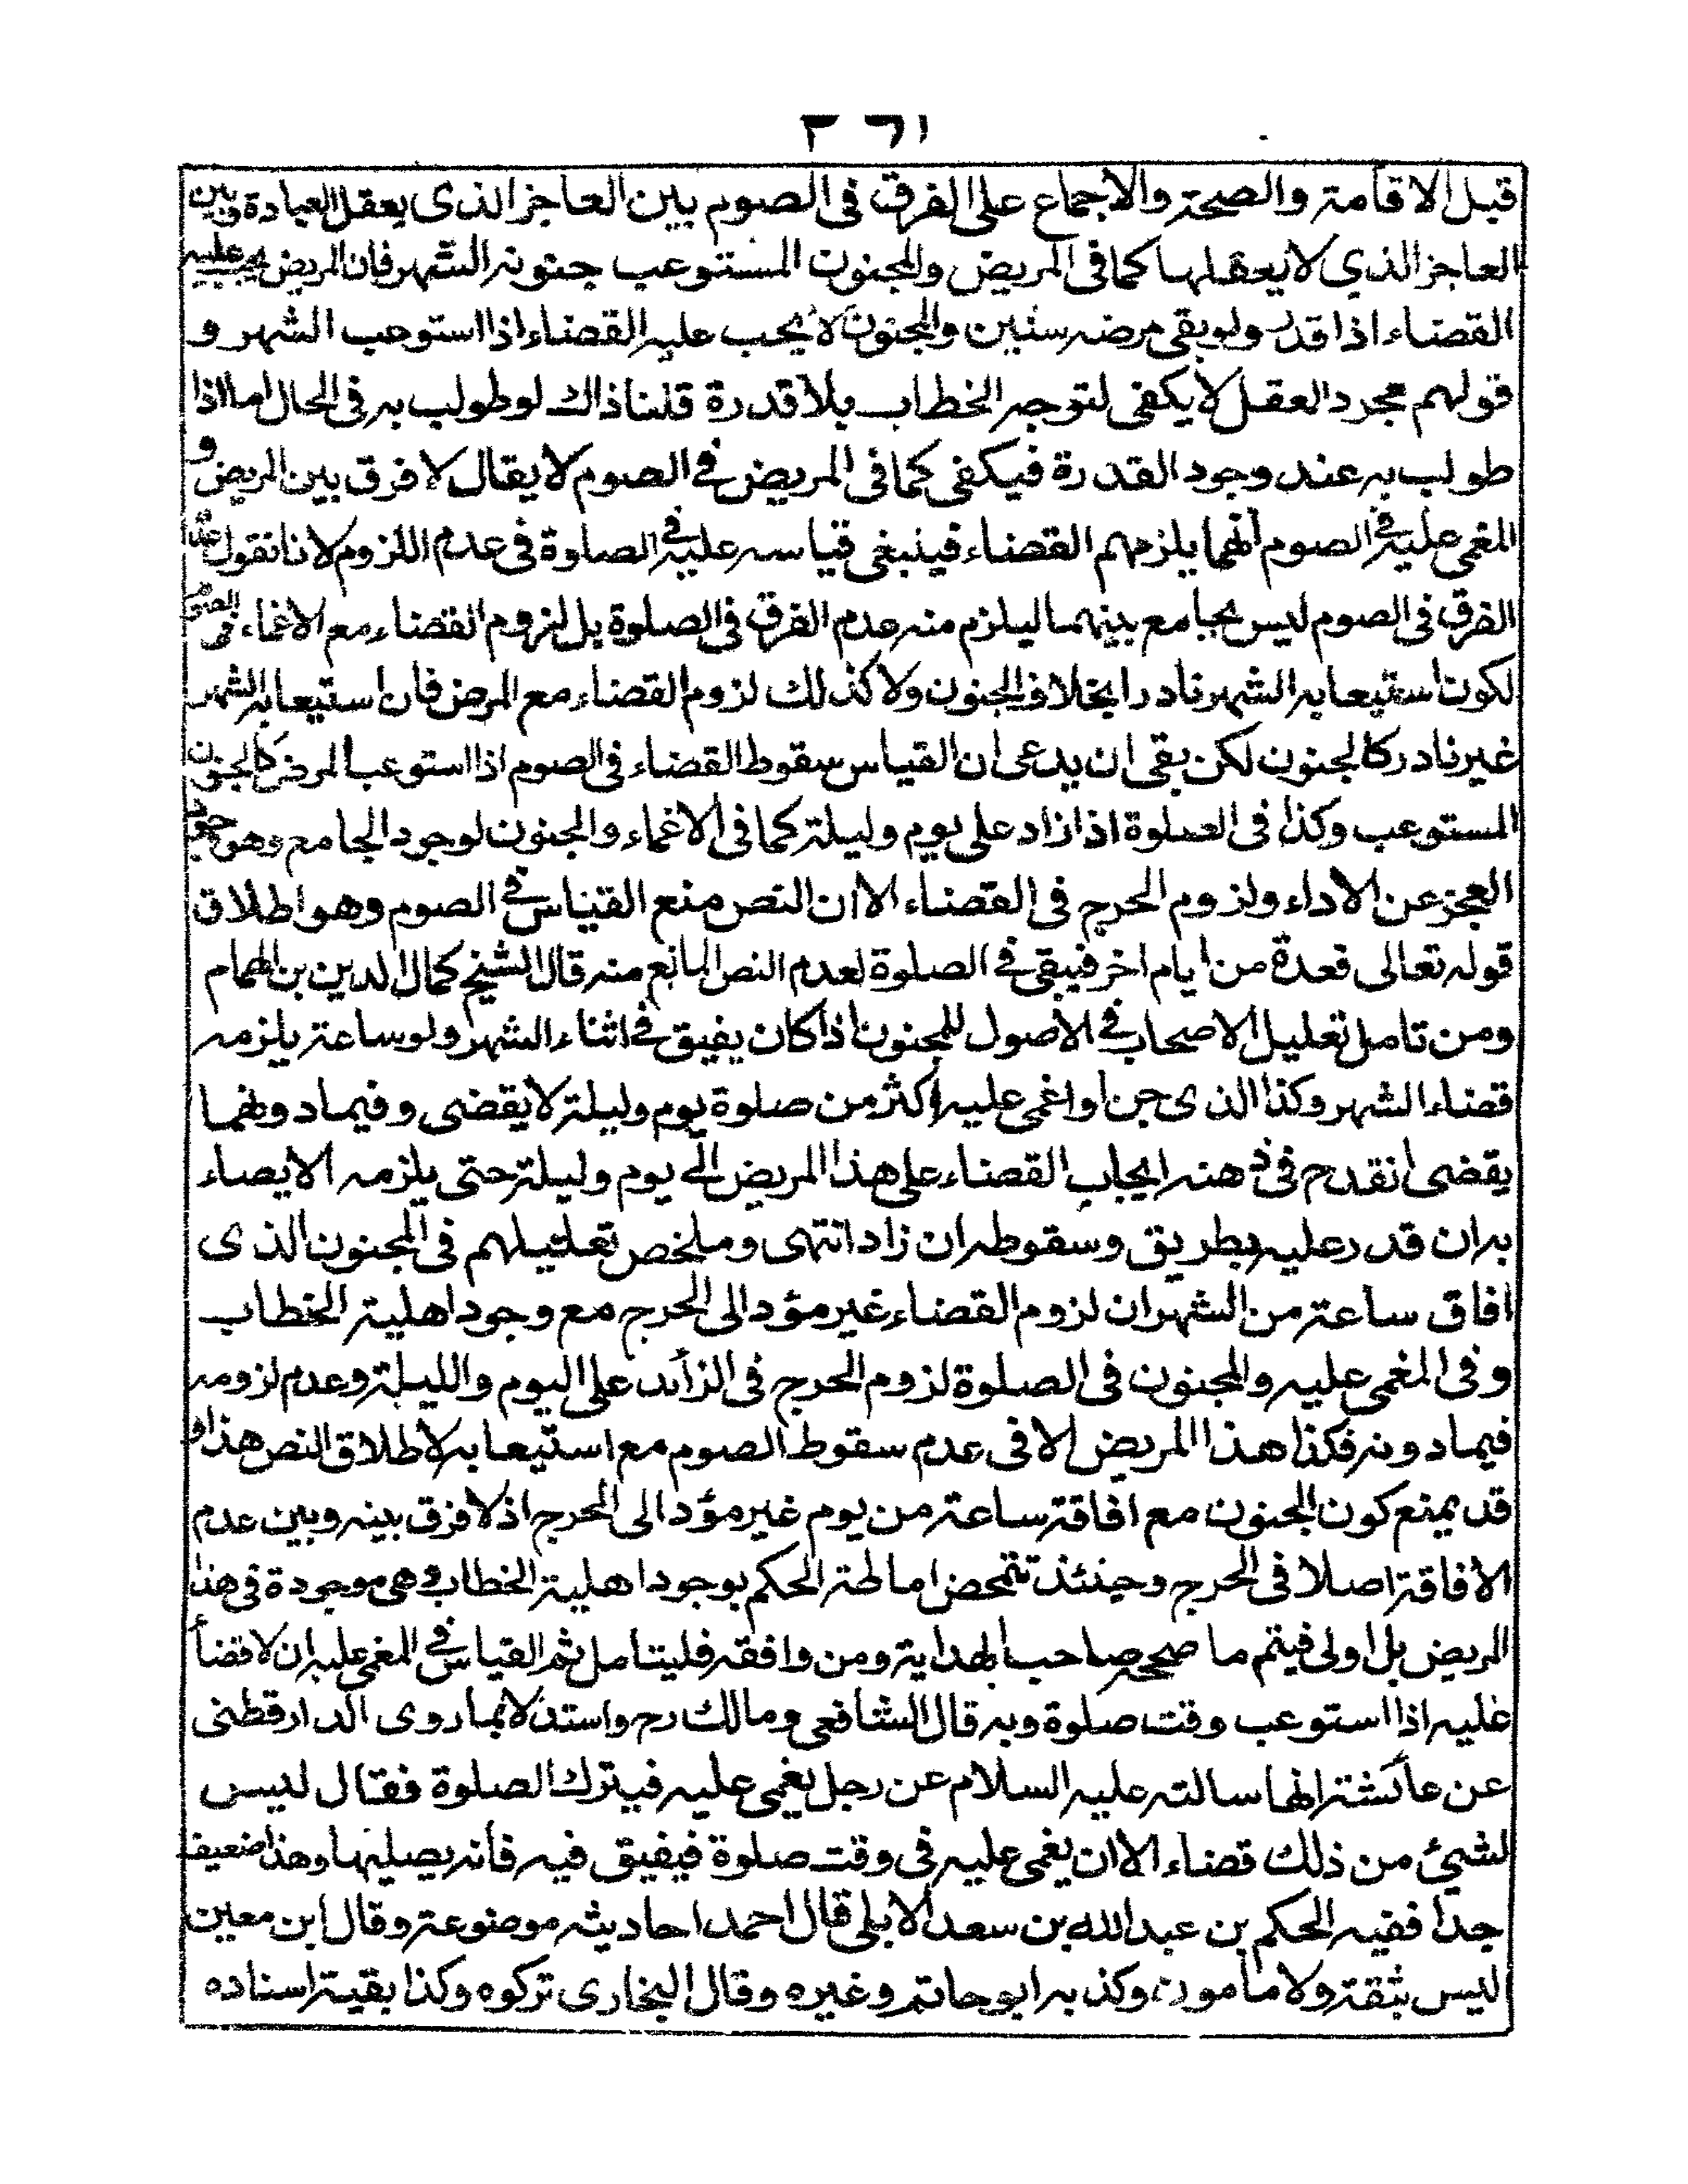 ٢٦١
قبل الاقامة والصحة والاجماع على الفرق فى الصوم بين العاجز الذى يعقل العبادة وبين
العاجز الذي لا يعقلها كما فى المريض والمجنون المستوعب جنونه الشهر فان المريض يجب عليه
القضاء اذا قدر ولو بقى مرضه سنين والمجنون لا يجب عليه القضاء اذا استوعب الشهر و
قولهم مجرد العقل لا يكفى لتوجه الخطاب بلا قدرة قلنا ذاك لو طولب به فى الحال اما اذا
طولب به عند وجود القدرة فيكفى كما فى المريض فى الصوم لا يقال لا فرق بين المريض و
المغمى عليه فى الصوم انهما يلزمهم القضاء فينبغى قياسه عليه فى الصلوة فى عدم اللزوم لانا نقول عدم
الفرق فى الصوم ليس بجامع بينهما ليلزم منه عدم الفرق فى الصلوة بل لزوم القضاء مع الاغماء فى الصوم
لكون استيعابه الشهر نادرا بخلاف الجنون ولا كذلك لزوم القضاء مع المرض فان استيعابه الشهر
غير نادر كالجنون لكن بقى ان يدعى ان القياس سقوط القضاء فى الصوم اذا استوعب المرض كالجنون
المستوعب وكذا فى الصلوة اذا زاد على يوم وليلة كما فى الاغماء والجنون لوجود الجامع وهو
العجز عن الاداء ولزوم الحرج فى القضاء الا ان النص منع القياس فى الصوم وهو اطلاق
قوله تعالى فعدة من ايام اخر فيبقى فى الصلوة لعدم النص المانع منه قال الشيخ كمال الدين بن الهمام
ومن تامل تعليل الاصحاب فى الاصول للمجنون اذا كان يفيق فى اثناء الشهر ولو ساعة يلزمه
قضاء الشهر وكذا الذى جن او اغمى عليه اكثر من صلوة يوم وليلة لا يقضى وفيما دونها
يقضى انقدح فى ذهنه ايجاب القضاء على هذا المريض الى يوم وليلة حتى يلزمه الايصاء
به ان قدر عليه بطريق وسقوطه ان زاد انتهى وملخص تعليلهم فى المجنون الذى
افاق ساعة من الشهر ان لزوم القضاء غير مؤد الى الحرج مع وجود اهلية الخطاب
وفى المغمى عليه والمجنون فى الصلوة لزوم الحرج فى الزائد على اليوم والليلة وعدم لزومه
فيما دونه فكذا هذا المريض الا فى عدم سقوط الصوم مع استيعابه لاطلاق النص هذا و
قد يمنع كون الجنون مع افاقة ساعة من يوم غير مؤد الى الحرج اذ لا فرق بينه وبين عدم
الافاقة اصلا فى الحرج وحينئذ تتمحض احالة الحكم بوجود اهلية الخطاب وهى موجودة فى هذا
المريض بل اولى فيتم ما صححه صاحب الهداية ومن وافقه فليتامل ثم القياس فى المغمى عليه ان لا قضأ
عليه اذا استوعب وقت صلوة وبه قال الشافعى ومالك رح واستدلا بما روى الدارقطنى
عن عائشة انها سالته عليه السلام عن رجل يغمى عليه فيترك الصلوة فقال ليس
لشئ من ذلك قضاء الا ان يغمى عليه فى وقت صلوة فيفيق فيه فانه يصليها وهذا ضعيف
جدا ففيه الحكم بن عبد الله بن سعد الايلى قال احمد احاديثه موضوعة وقال ابن معين
ليس بثقة ولا مامون وكذبه ابو حاتم وغيره وقال البخارى تركوه وكذا بقية اسناده